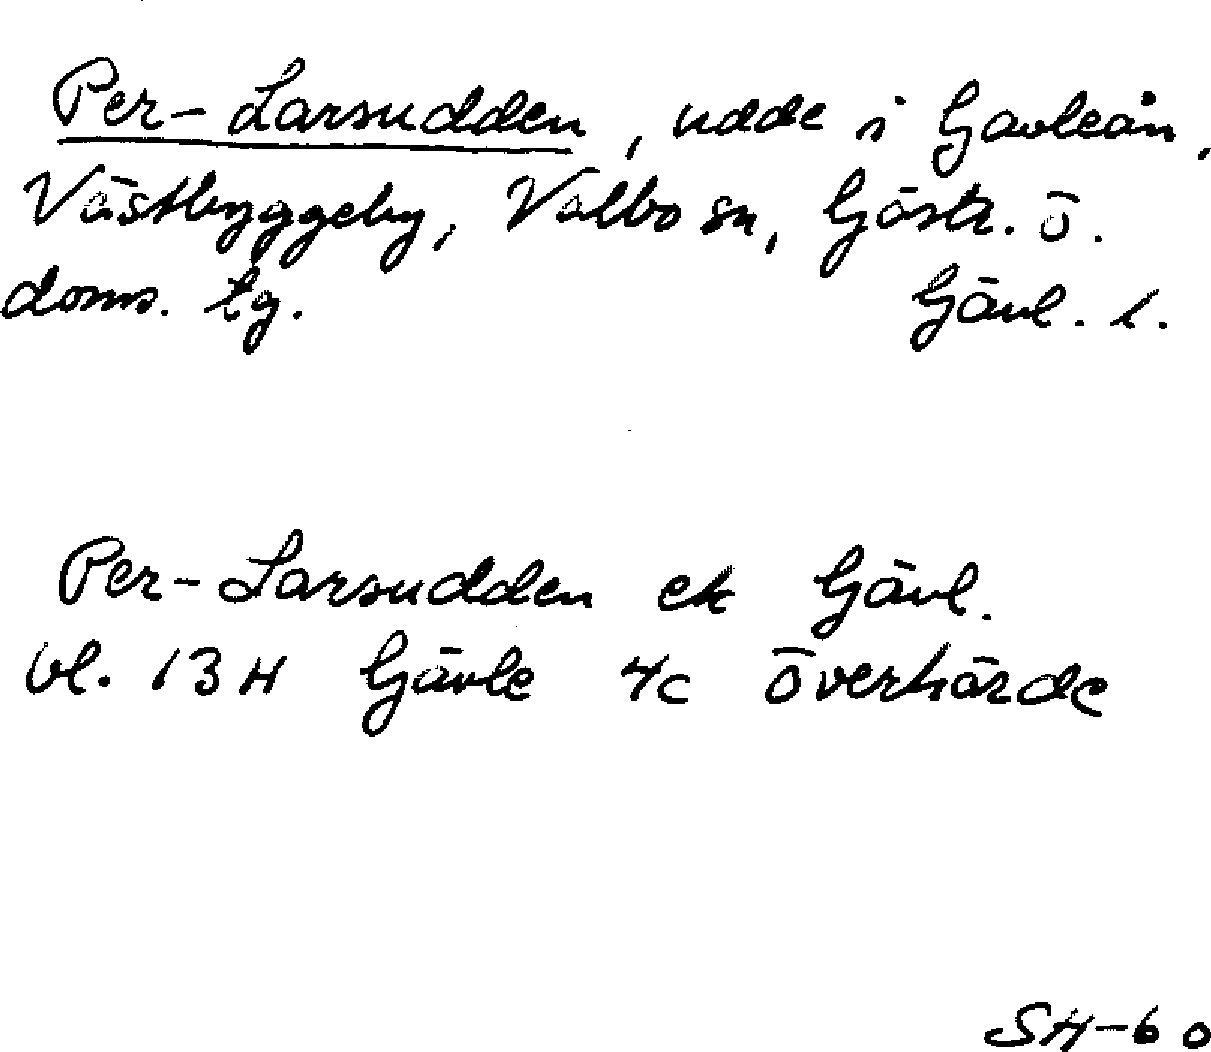 Per-Larsudden, udde i Gavleån,
Västbyggeby, Valbo sn, Gästr. ö.
doms. tg. Gävl. l.
Per-Larsudden ek Gävl.
bl. 13H Gävle 4c Överhärde
SH-60